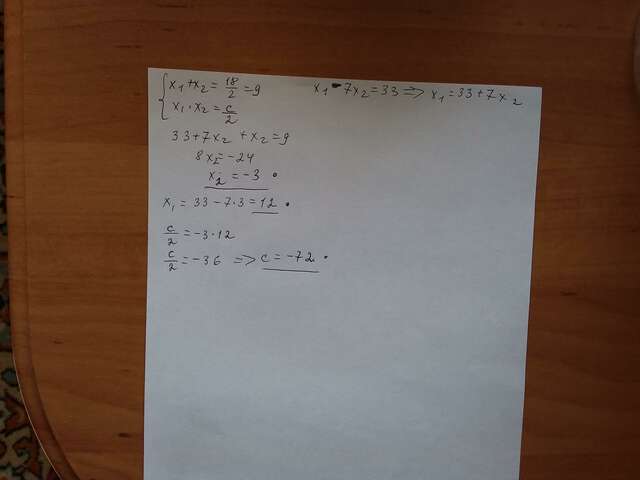 x₁ + x₂ = 18/2 = 9
x₁ · x₂ = c/2
x₁ - 7x₂ = 33 => x₁ = 33 + 7x₂
33 + 7x₂ + x₂ = 9
8x₂ = -24
x₂ = -3
x₁ = 33 - 7·3 = 12
c/2 = -3·12
c/2 = -36 => c = -72